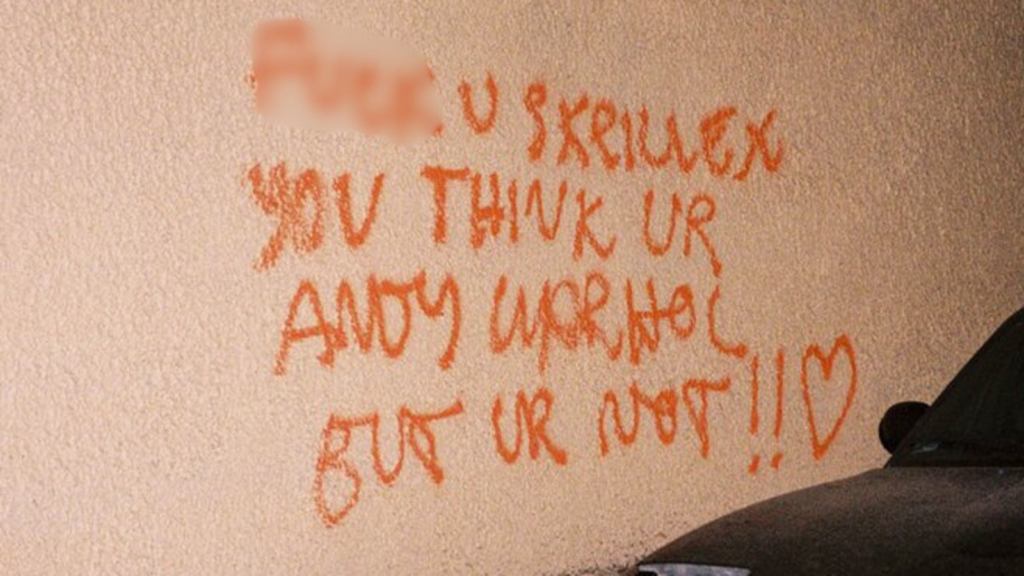 U SKRILLEX
YOU THINK UR
ANDY WARHOL
BUT UR NOT!!♡